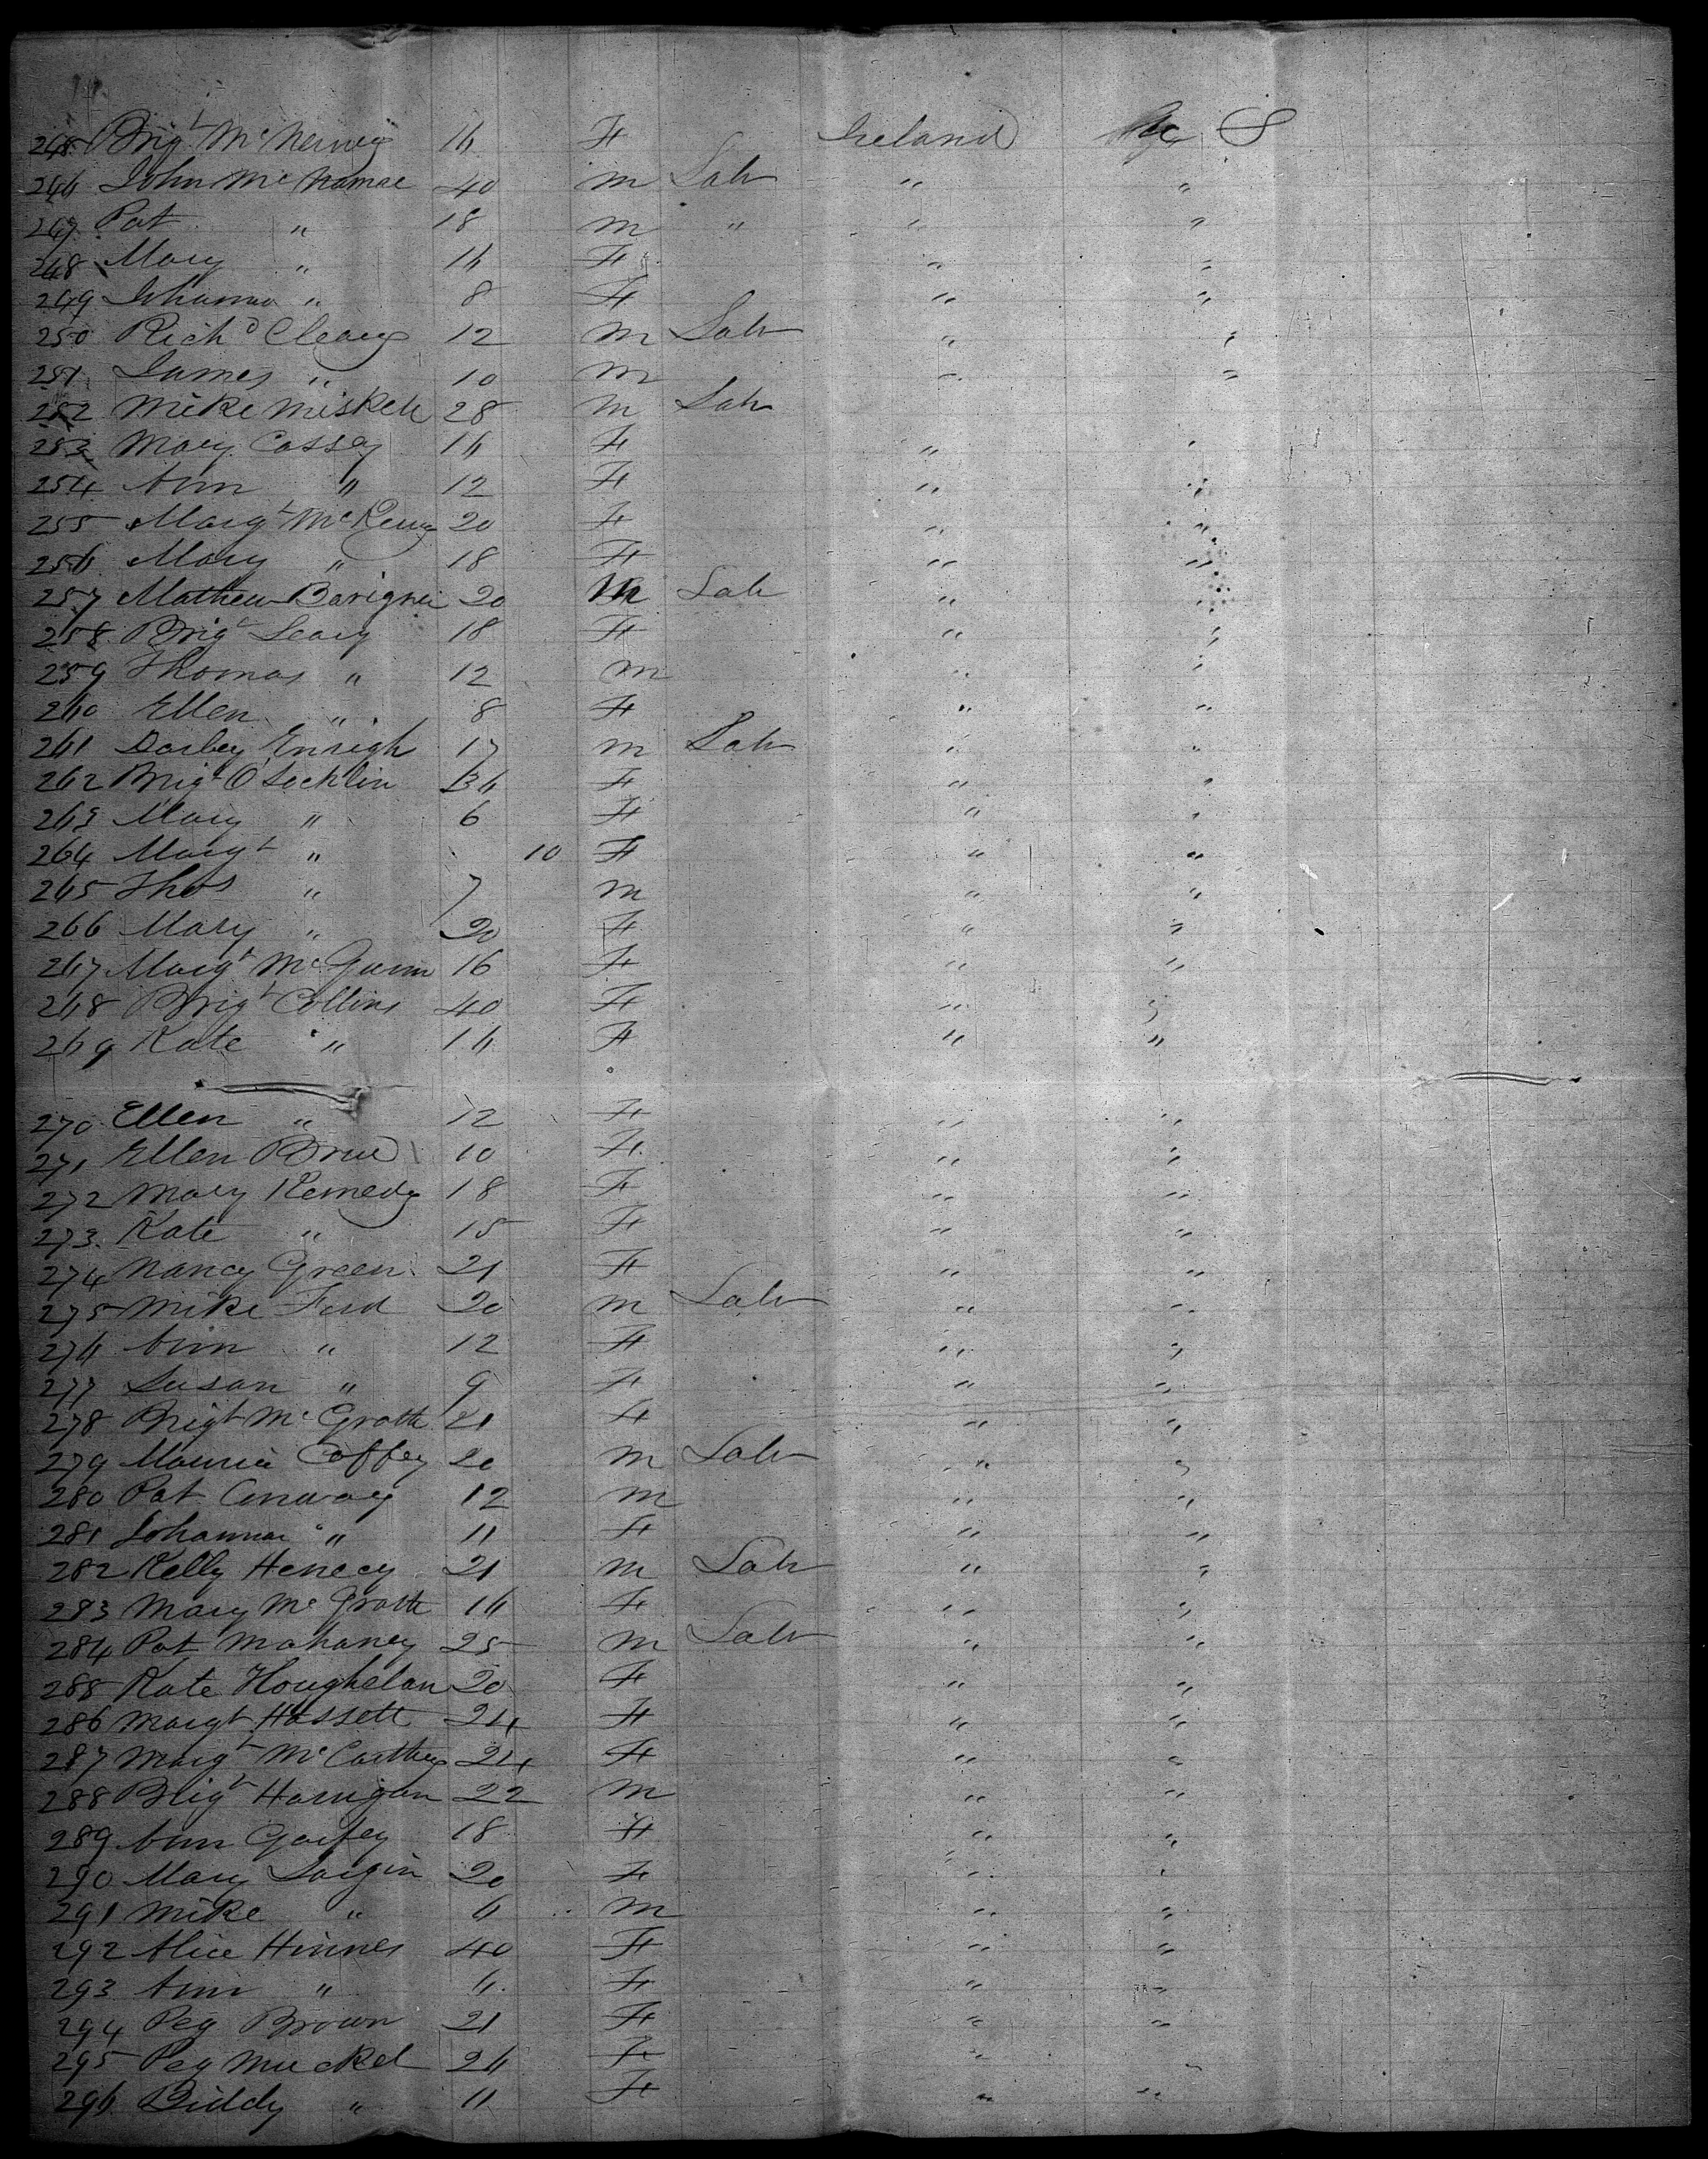 245 Brigt McNerney 16 F Ireland U S
246 John McNamae 40 m Lab " "
247 Pat " 18 m " " "
248 Mary " 16 F " "
249 Johanna " 8 F " "
250 Richd Cleary 12 m Lab " "
251 James " 10 m " "
252 Mike Miskele 28 m Lab
253 Mary Cassey 16 F " "
254 Ann " 12 F " "
255 Margt McKeny 20 F " "
256 Mary " 18 F " "
257 Mathew 20 m Lab " "
258 Brigt Leary 18 F " "
259 Thomas " 12 m " "
260 Ellen " 8 F " "
261 Darbey Enrigh 17 m Lab " "
262 Brigt O'Lochlin 36 F " "
263 Mary " 6 F " "
264 Margt " 10 F " "
265 Thos " 7 m " "
266 Mary " 20 F " "
267 Margt McGunn 16 F " "
268 Brigt Collins 40 F " "
269 Kate " 16 F " "
270 Ellen " 12 F " "
271 Ellen 10 F " "
272 Mary Kennedy 18 F " "
273 Kate " 15 F " "
274 Nancy Green 21 F " "
275 Mike Ford 20 m Lab " "
276 Ann " 12 F " "
277 Susan " 9 F " "
278 Brigt McGrath 21 F " "
279 Mauric Coffey 20 m Lab " "
280 Pat Conway 12 m " "
281 Johanna " 11 F " "
282 Kelly Henecy 21 m Lab " "
283 Mary McGrath 16 F " "
284 Pat Mahaney 25 m Lab " "
285 Kate Houghelan 20 F " "
286 Margt Hassett 24 F " "
287 Margt McCarthy 24 F " "
288 Brigt Harrigan 22 m " "
289 Ann Garfey 18 F " "
290 Mary Largin 20 F " "
291 Mike " 6 m " "
292 Alice Hinnes 40 F " "
293 Ann " 6 F " "
294 Peg Brown 21 F " "
295 Peg Muckel 26 F " "
296 Biddy " 11 F " "